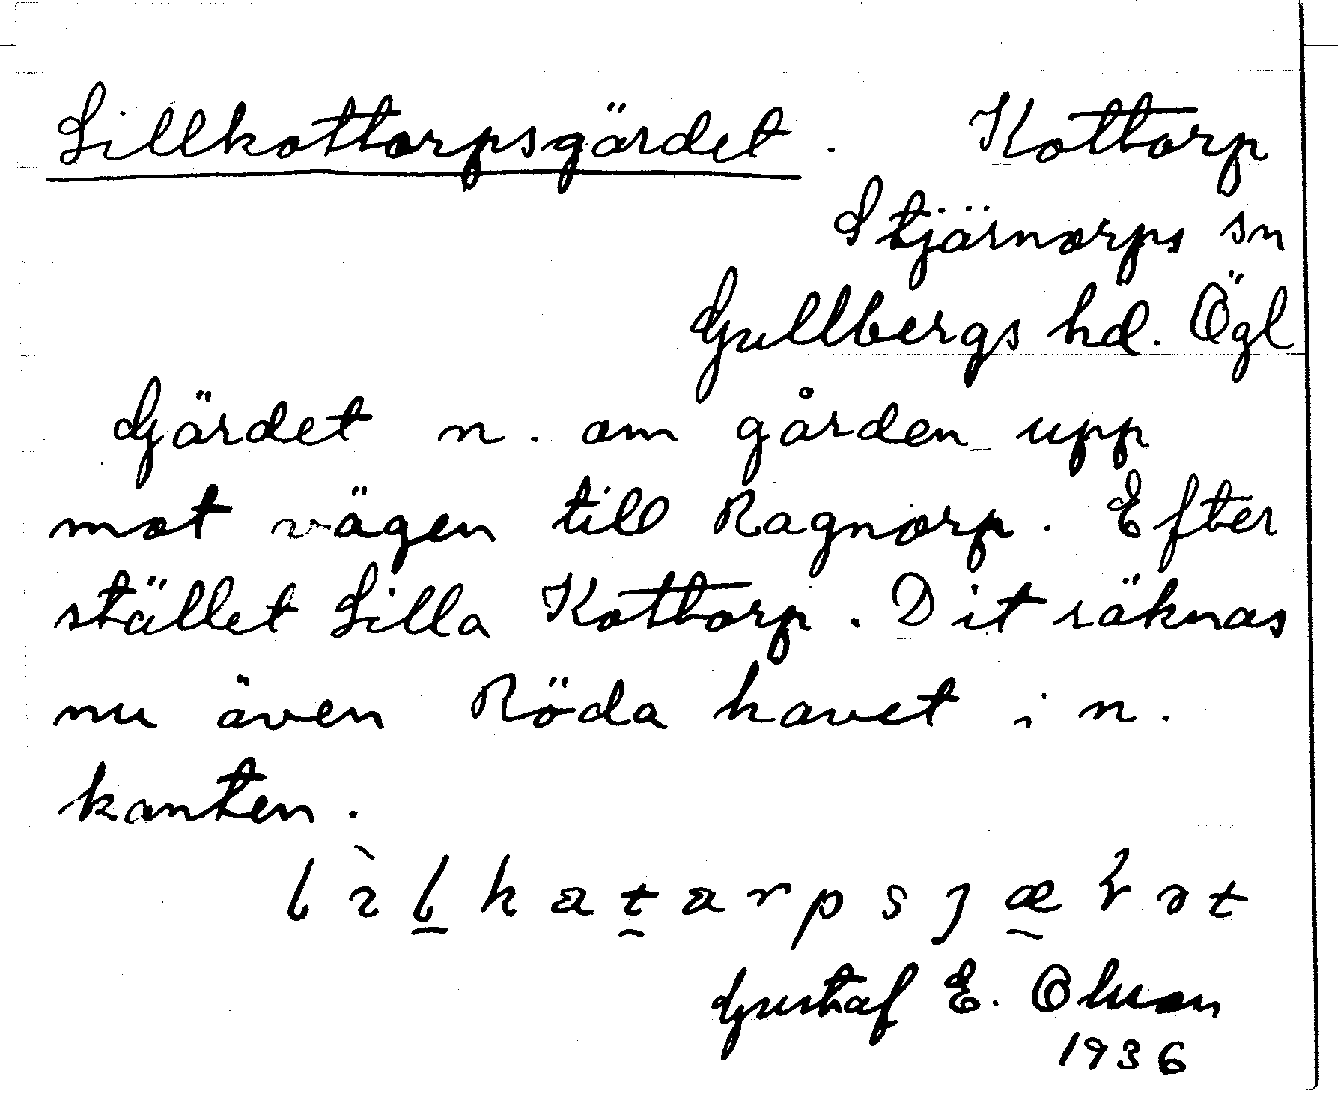 Lillkottorpsgärdet. Kottorp
Stjärnorps sn
Gullbergs hd. Ögl
Gärdet n. om gården upp
mot vägen till Ragnorp. Efter
stället Lilla Kottorp. Dit räknas
nu även Röda havet i n.
kanten.
Gustaf E. Olsson
1936